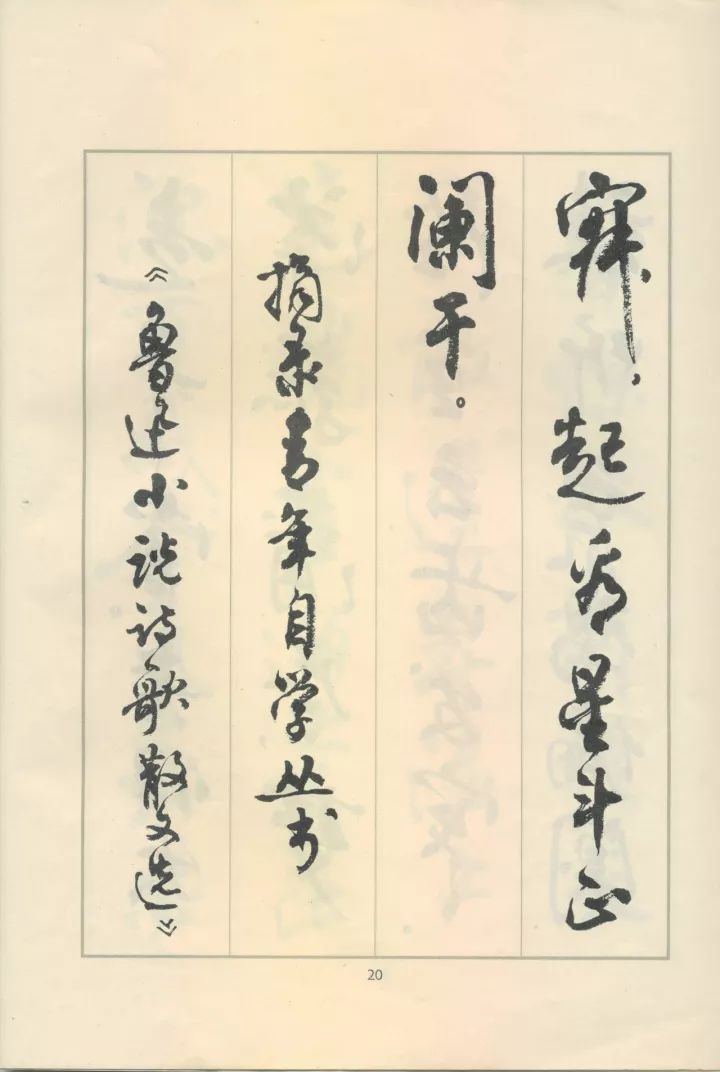 寐，起看星斗正
阑干。
摘录青年自学丛书
《鲁迅小说诗歌散文选》
20